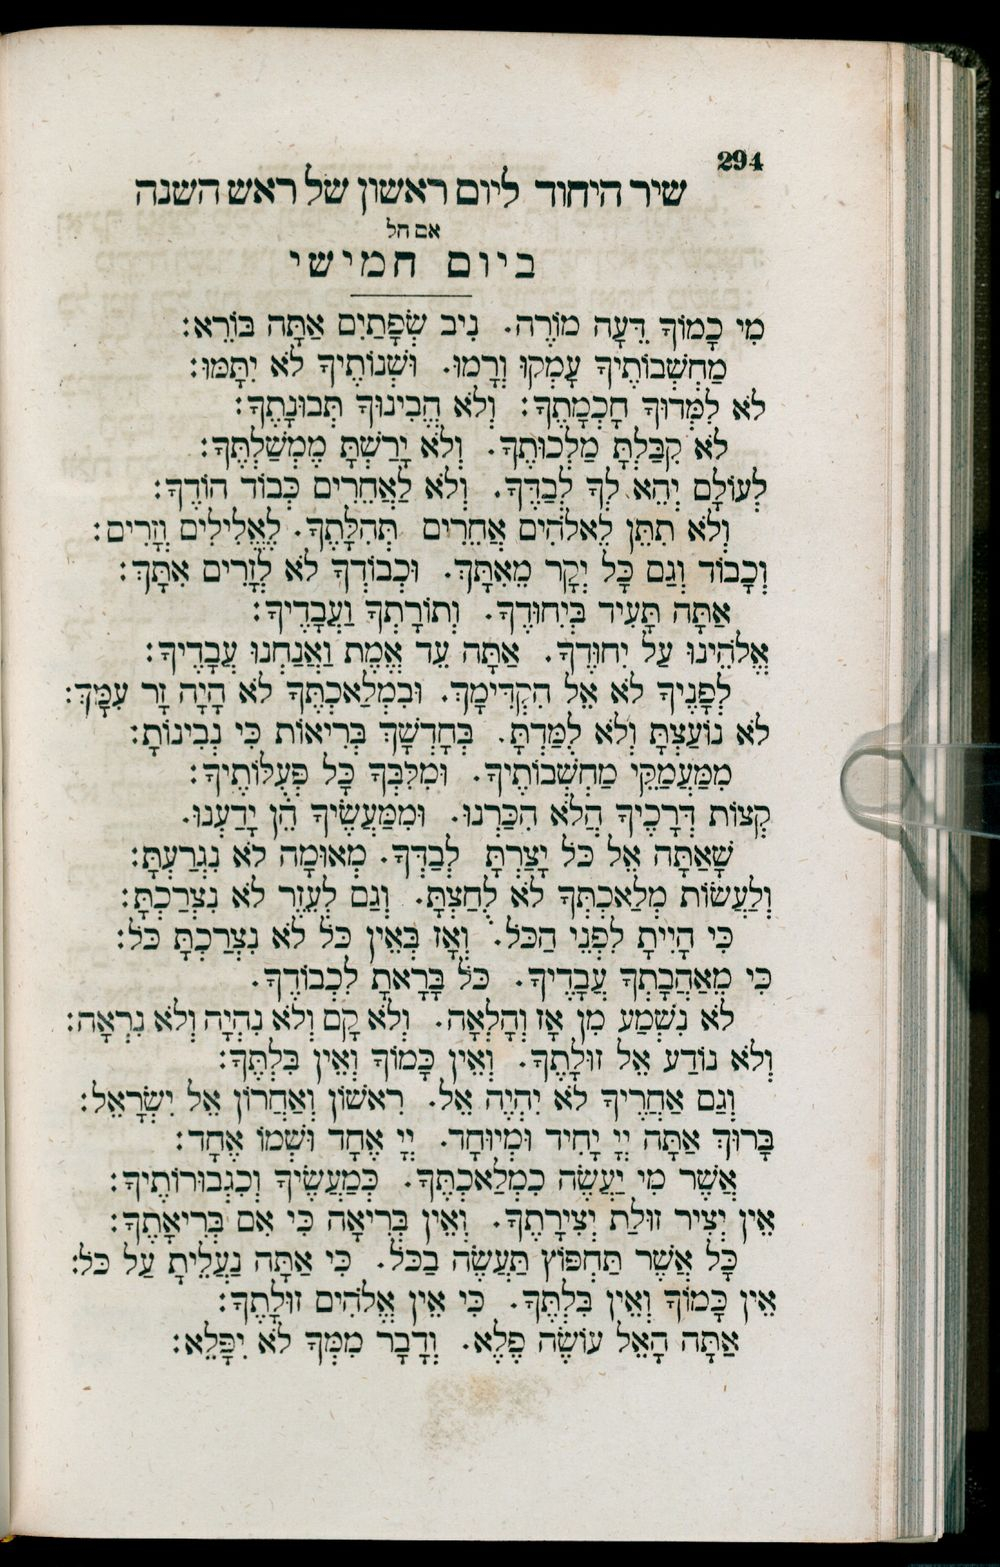 294
שיר היחוד ליום ראשון של ראש השנה
אם חל
ביום חמישי
מִי כָמוֹךָ דֵּעָה מוֹרֶה. נִיב שְׂפָתַיִם אַתָּה בּוֹרֵא:
מַחְשְׁבוֹתֶיךָ עָמְקוּ וְרָמוּ. וּשְׁנוֹתֶיךָ לֹא יִתָּמּוּ:
לֹא לִמְּדוּךָ חָכְמָתֶךָ: וְלֹא הֱבִינוּךָ תְּבוּנָתֶךָ:
לֹא קִבַּלְתָּ מַלְכוּתֶךָ. וְלֹא יָרַשְׁתָּ מֶמְשַׁלְתֶּךָ:
לְעוֹלָם יְהֵא לְךָ לְבַדֶּךָ. וְלֹא לַאֲחֵרִים כְּבוֹד הוֹדֶךָ:
וְלֹא תִתֵּן לֵאלֹהִים אֲחֵרִים תְּהִלָּתֶךָ. לֶאֱלִילִים וְזָרִים:
וְכָבוֹד וְגַם כָּל יְקָר מֵאִתָּךְ. וּכְבוֹדְךָ לֹא לְזָרִים אִתָּךְ:
אַתָּה תָּעִיד בְּיִחוּדֶךָ. וְתוֹרָתְךָ וַעֲבָדֶיךָ:
אֱלֹהֵינוּ עַל יִחוּדֶךָ. אַתָּה עֵד אֱמֶת וַאֲנַחְנוּ עֲבָדֶיךָ:
לְפָנֶיךָ לֹא אֵל הִקְדִּימָךְ. וּבִמְלַאכְתֶּךָ לֹא הָיָה זָר עִמָּךְ:
לֹא נוֹעַצְתָּ וְלֹא לֻמַּדְתָּ. בְּחָדְשָׁךְ בְּרִיאוֹת כִּי נְבִינוֹתָ:
מִמַּעֲמַקֵּי מַחְשְׁבוֹתֶיךָ. וּמִלִּבְּךָ כָּל פְּעֻלּוֹתֶיךָ:
קְצוֹת דְּרָכֶיךָ הֲלֹא הִכַּרְנוּ. וּמִמַּעֲשֶׂיךָ הֵן יָדַעְנוּ.
שָׁאַתָּה אֵל כֹּל יָצַרְתָּ לְבַדְּךָ. מְאוּמָה לֹא נִגְרַעְתָּ:
וְלַעֲשׂוֹת מְלַאכְתְּךָ לֹא לֻחַצְתָּ. וְגַם לְעֵזֶר לֹא נִצְרַכְתָּ:
כִּי הָיִיתָ לִפְנֵי הַכֹּל. וְאָז בְּאֵין כֹּל לֹא נִצְרַכְתָּ כֹּל:
כִּי מֵאַהֲבָתְךָ עֲבָדֶיךָ. כֹּל בָּרָאתָ לִכְבוֹדֶךָ.
לֹא נִשְׁמַע מִן אָז וָהָלְאָה. וְלֹא קָם וְלֹא נִהְיָה וְלֹא נִרְאָה:
וְלֹא נוֹדַע אֵל זוּלָתֶךָ. וְאֵין כָּמוֹךָ וְאֵין בִּלְתֶּךָ:
וְגַם אַחֲרֶיךָ לֹא יִהְיֶה אֵל. רִאשׁוֹן וְאַחֲרוֹן אֵל יִשְׂרָאֵל:
בָּרוּךְ אַתָּה יְיָ יָחִיד וּמְיוּחָד. יְיָ אֶחָד וּשְׁמוֹ אֶחָד:
אֲשֶׁר מִי יַעֲשֶׂה כִמְלַאכְתֶּךָ. כְּמַעֲשֶׂיךָ וְכִגְבוּרוֹתֶיךָ:
אֵין יְצִיר זוּלַת יְצִירָתֶךָ. וְאֵין בְּרִיאָה כִּי אִם בְּרִיאָתֶךָ:
כָּל אֲשֶׁר תַּחְפּוֹץ תַּעֲשֶׂה בַכֹּל. כִּי אַתָּה נַעֲלֵיתָ עַל כֹּל:
אֵין כָּמוֹךָ וְאֵין בִּלְתֶּךָ. כִּי אֵין אֱלֹהִים זוּלָתֶךָ:
אַתָּה הָאֵל עוֹשֶׂה פֶלֶא. וְדָבָר מִמְּךָ לֹא יִפָּלֵא: